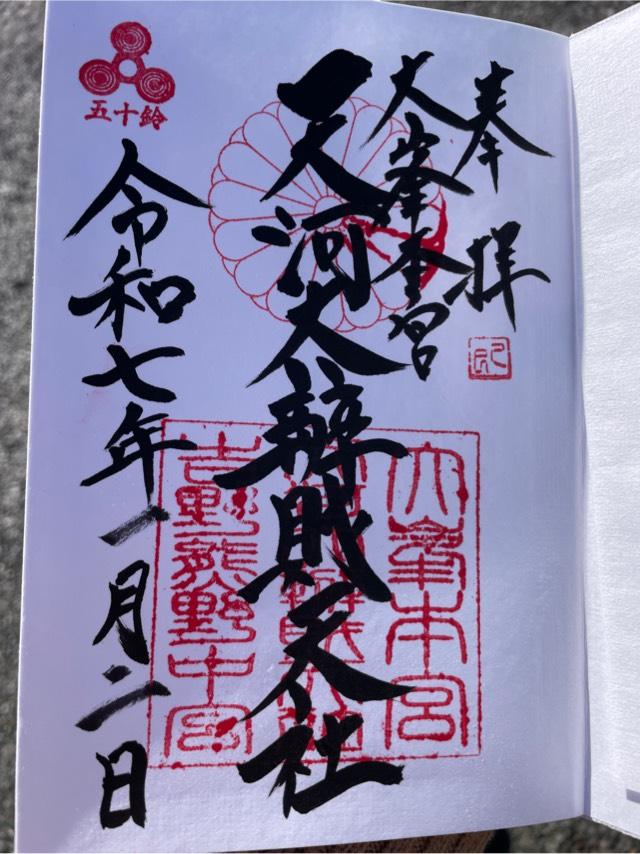 奉拝
大峯本宮
天河大辨財天社
令和七年一月二日
五十鈴
大峯本宮
天河大辨財天社
吉野熊野中宮